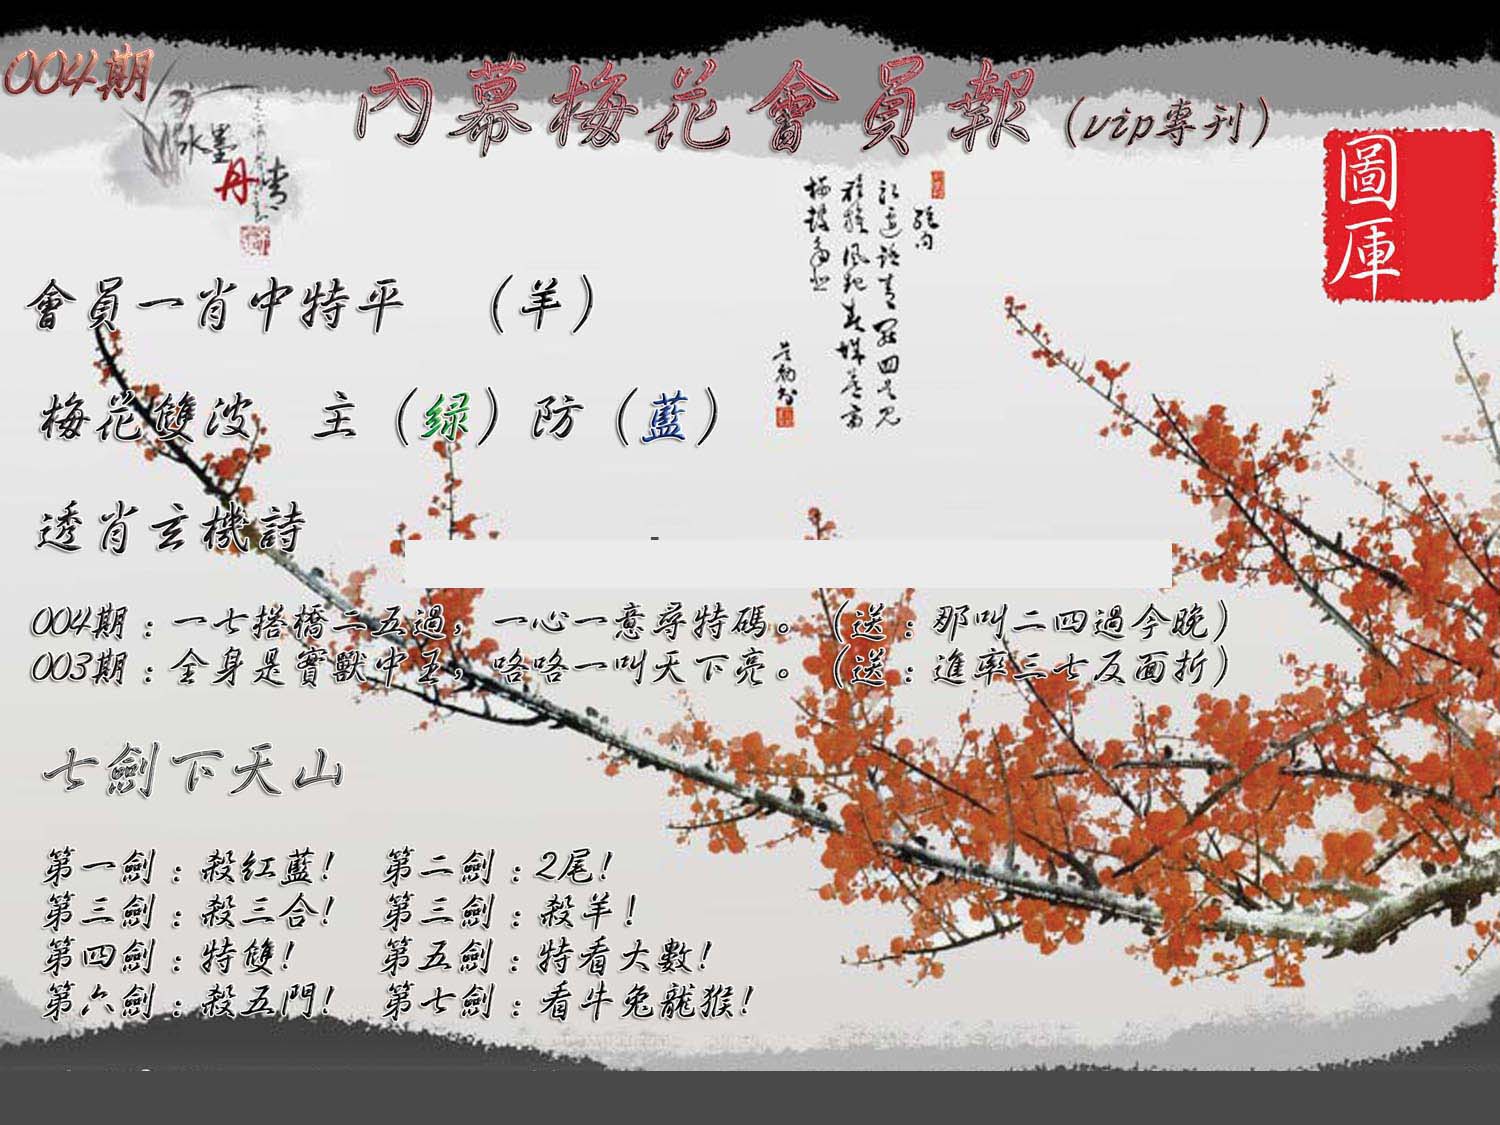 004期
內幕梅花會員報(vip專刊)
水墨
丹青
圖庫
會員一肖中特平 (羊)
梅花雙波 主(绿)防(藍)
透肖玄機詩
004期:一七搭橋二五過,一心一意尋特碼。(送:那叫二四過今晚)
003期:全身是寶獸中王,咯咯一叫天下亮。(送:進率三七反面折)
七劍下天山
第一劍:殺紅藍! 第二劍:2尾!
第三劍:殺三合! 第三劍:殺羊!
第四劍:特雙! 第五劍:特看大數!
第六劍:殺五門! 第七劍:看牛兔龍猴!